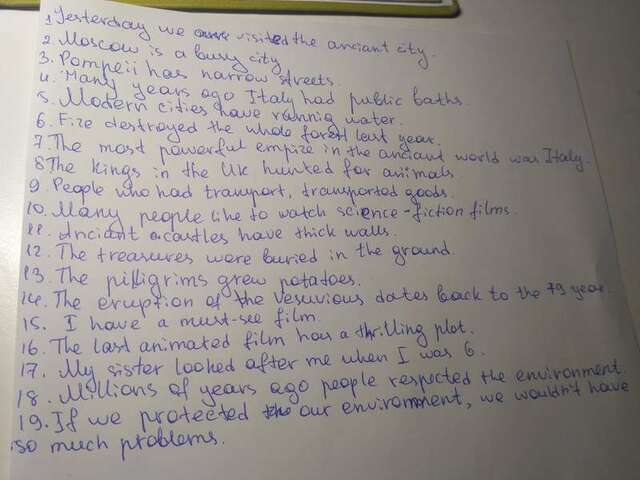 1 Yesterday we visited the anciant city.
2 Moscow is a busy city
3. Pompeii has narrow streets.
4. Many years ago Italy had public baths.
5. Modern cities have running water.
6. Fire destroyed the whole forest last year.
7. The most powerful empire in the anciant world was Italy.
8 The kings in the UK hunted for animals
9. People who had transport, transported goods.
10. Many people like to watch science-fiction films.
11. Anciant castles have thick walls.
12. The treasures were buried in the ground.
13. The pilligrims grew potatoes.
14. The eruption of the Vesuvious dates back to the 79 year.
15. I have a must-see film.
16. The last animated film has a thrilling plot.
17. My sister looked after me when I was 6.
18. Millions of years ago people respected the environment.
19. If we protected our environment, we wouldn't have
so much problems.